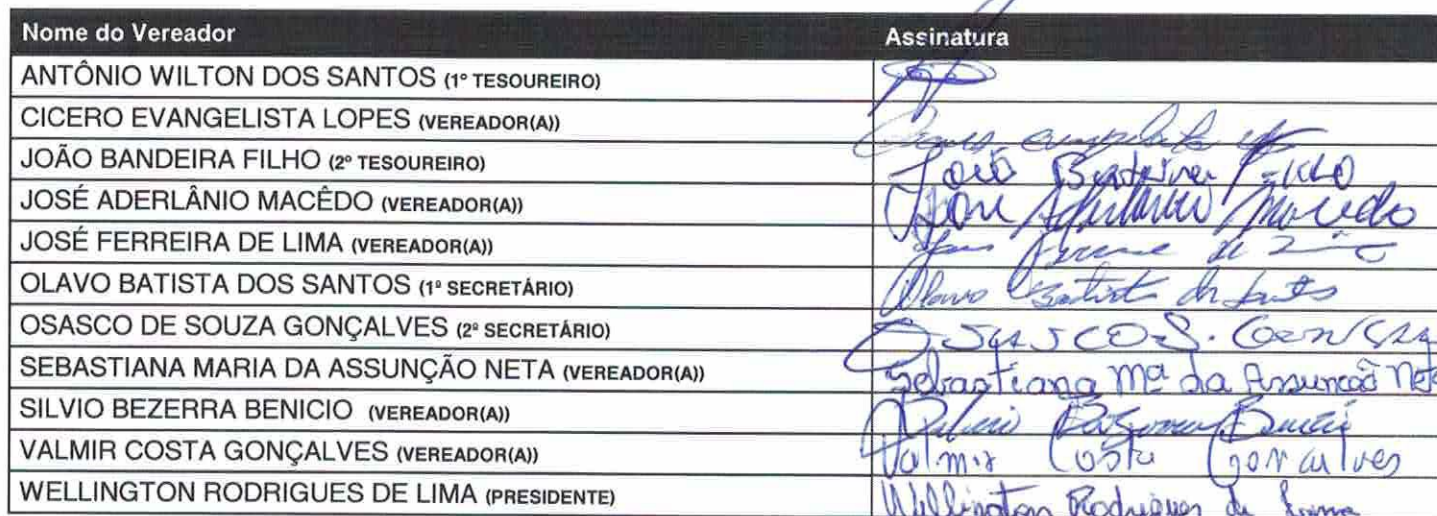 Nome do Vereador Assinatura
ANTÔNIO WILTON DOS SANTOS (1º TESOUREIRO)
CICERO EVANGELISTA LOPES (VEREADOR(A))
JOÃO BANDEIRA FILHO (2º TESOUREIRO) João Bandeira Filho
JOSÉ ADERLÂNIO MACÊDO (VEREADOR(A)) José Aderlanio Macedo
JOSÉ FERREIRA DE LIMA (VEREADOR(A)) de
OLAVO BATISTA DOS SANTOS (1º SECRETÁRIO) Olavo Batista dos Santos
OSASCO DE SOUZA GONÇALVES (2º SECRETÁRIO)
SEBASTIANA MARIA DA ASSUNÇÃO NETA (VEREADOR(A)) Sebastiana Mª da Assunção Neta
SILVIO BEZERRA BENICIO (VEREADOR(A))
VALMIR COSTA GONÇALVES (VEREADOR(A)) Valmir Costa Goncalves
WELLINGTON RODRIGUES DE LIMA (PRESIDENTE) Wellington Rodrigues de Lima